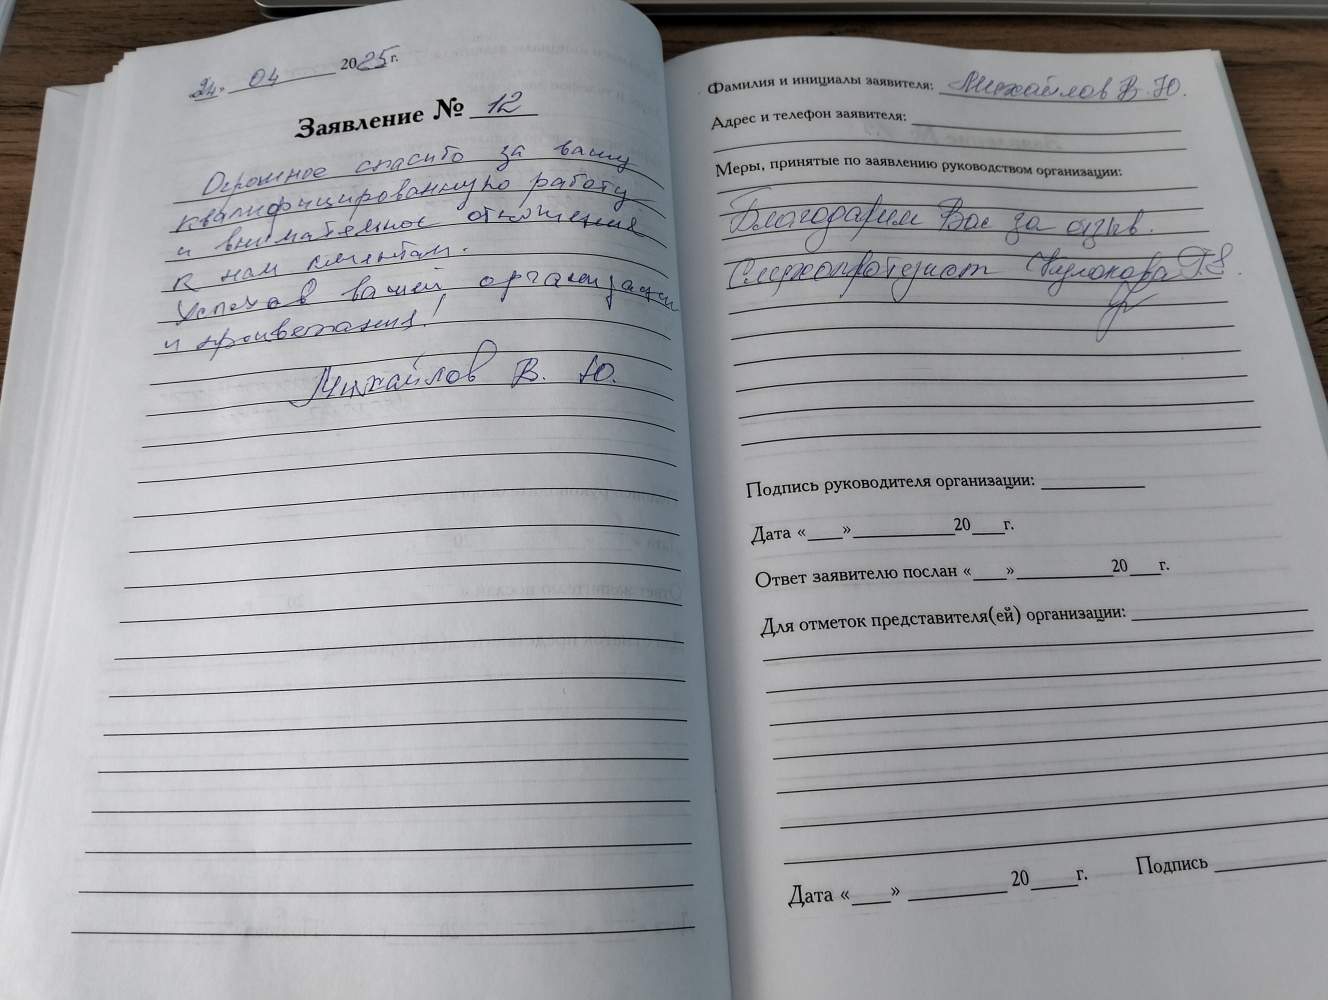 24. 04 2025 г.
Заявление № 12
Огромное спасибо за вашу
квалифицированную работу
и внимательное отношение
к нам клиентам.
Успехов вашей организации
и процветания!
Михайлов В. Ю.
Фамилия и инициалы заявителя: Михайлов В. Ю.
Адрес и телефон заявителя:
Меры, принятые по заявлению руководством организации:
Благодарим Вас за отзыв.
Слухопротезист
Подпись руководителя организации:
Дата «___»__________20___г.
Ответ заявителю послан «___»__________20___г.
Для отметок представителя(ей) организации:
Дата «___» __________20____г. Подпись